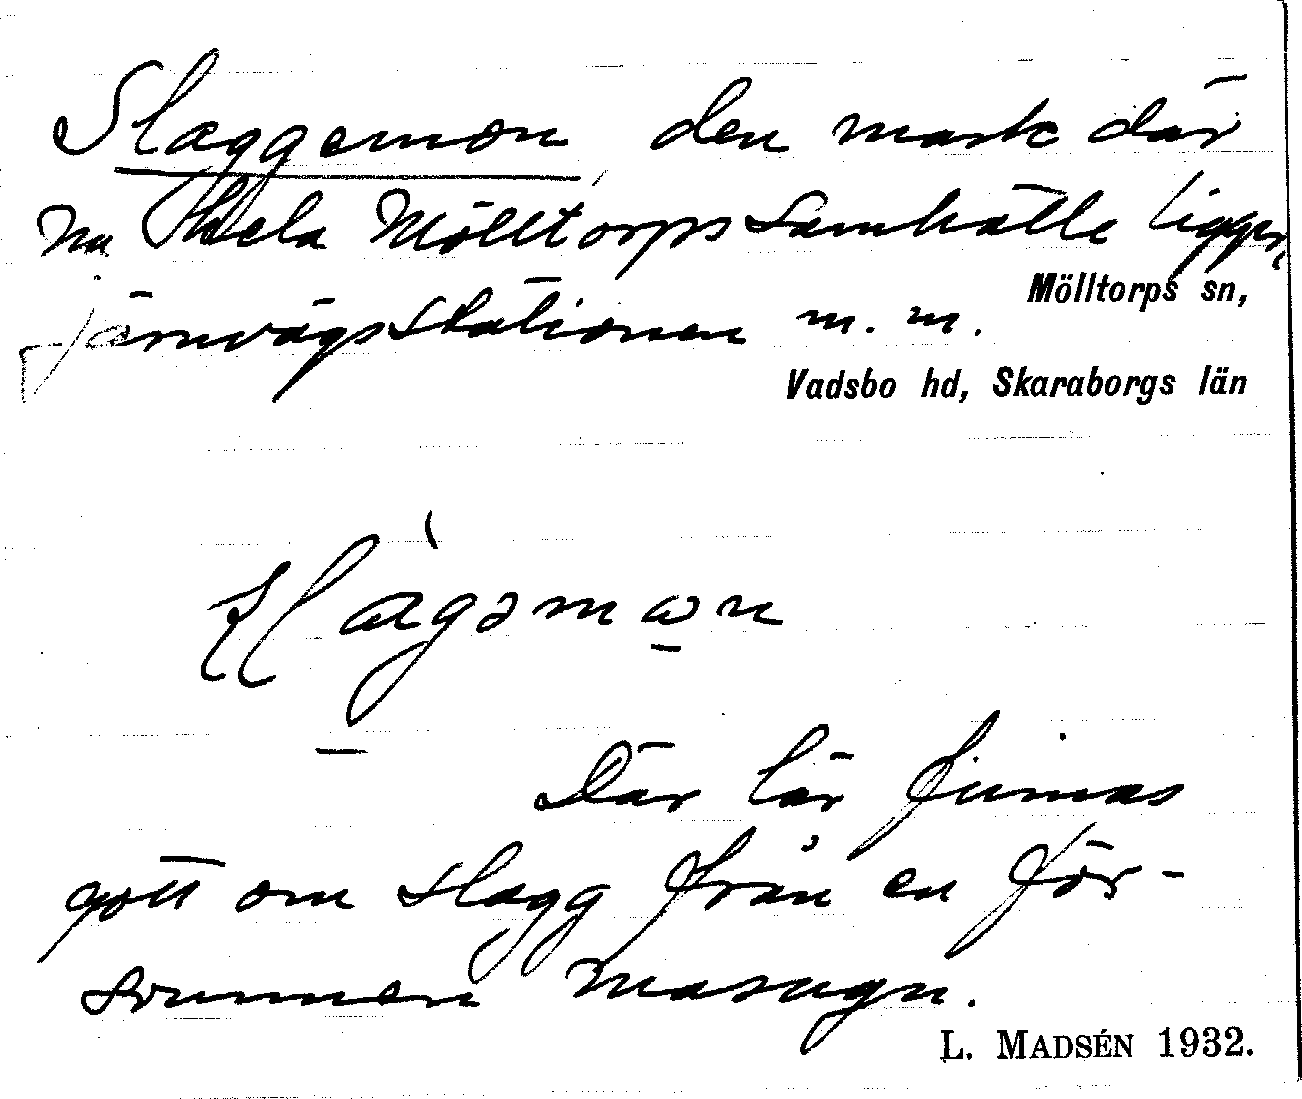 Slaggemon den mark där
nu hela Mölltorps samhälle ligger,
järnvägsstationen m. m.
Mölltorps sn,
Vadsbo hd, Skaraborgs län
Där lär finnas
gott om slagg från en för-
svunnen masugn.
L. MADSÉN 1932.